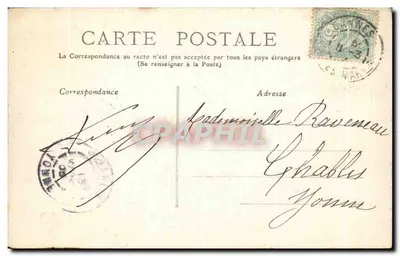 CARTE POSTALE
La Correspondance au recto n'est pas acceptée par tous les pays étrangers
(Se renseigner à la Poste)
Correspondance
Adresse
Mademoiselle Raveneau
Chablis
Yonne
CPAPHIL
YONNE